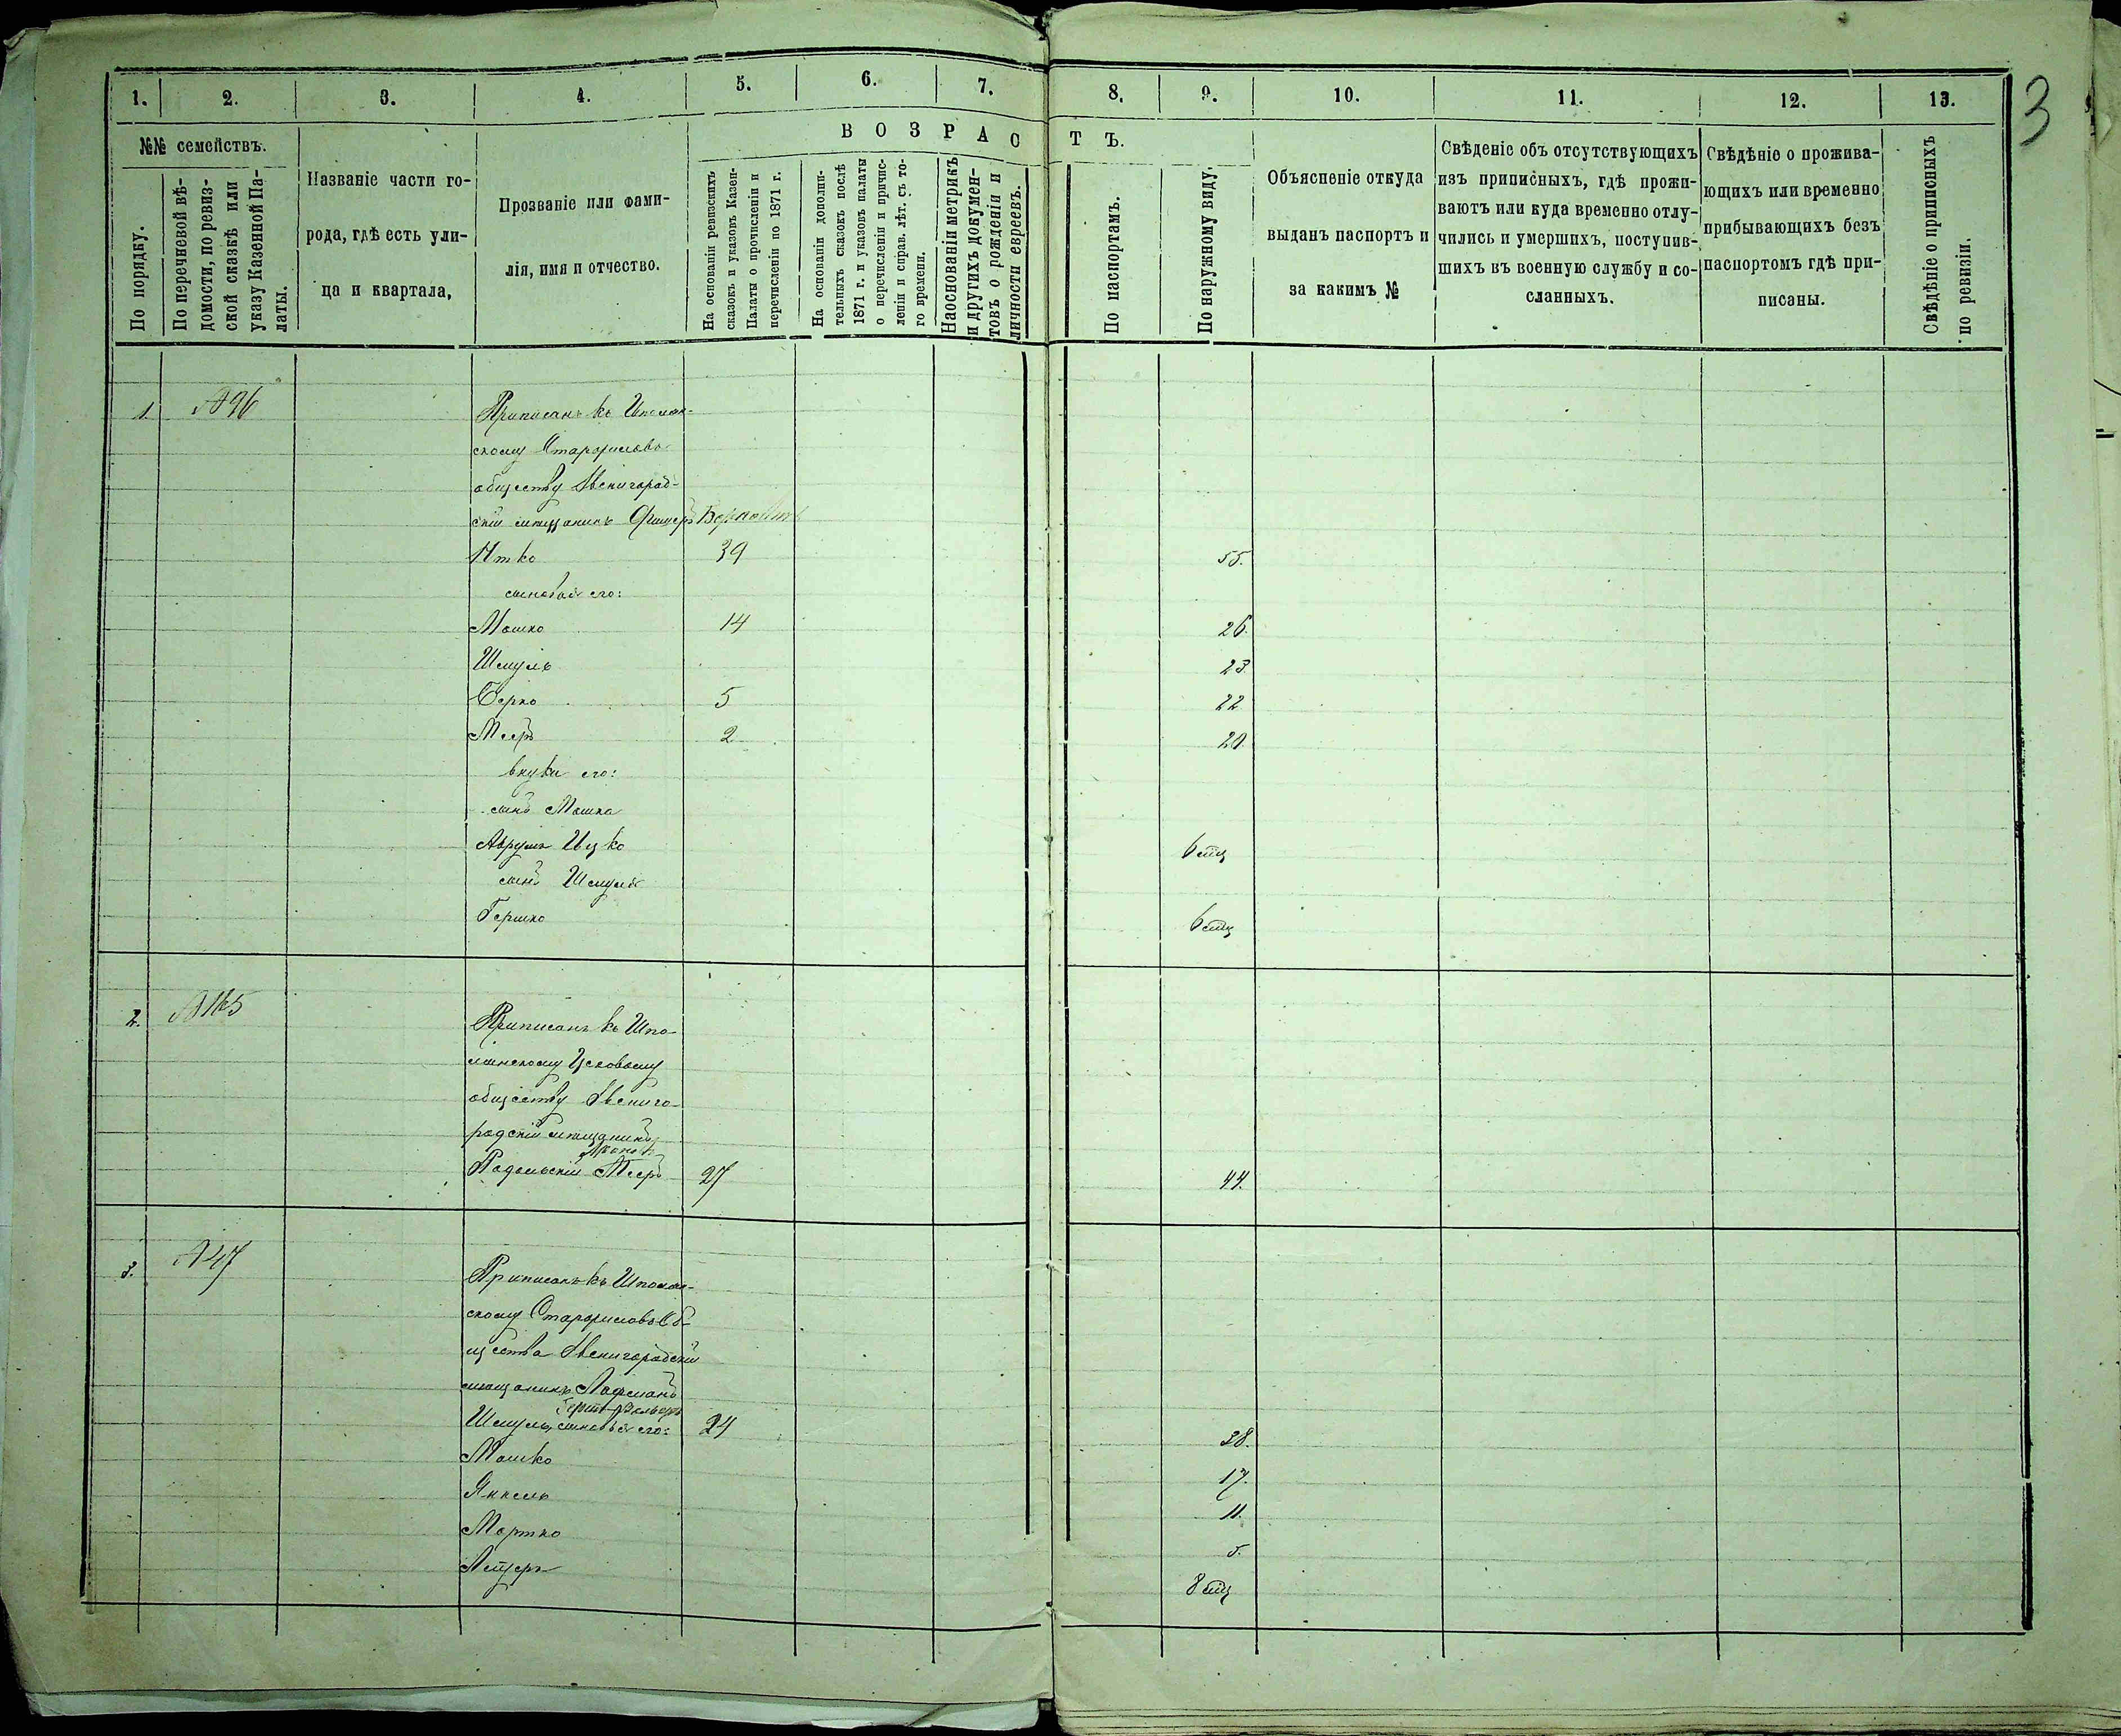 3
1. 2. 3. 4. 5. 6. 7. 8. 9. 10. 11. 12. 13.
№№ семействъ.
По порядку.
По перечневой вѣ-
домости, по ревиз-
ской сказкѣ или
указу Казенной Па-
латы.
Названіе части го-
рода, гдѣ есть ули-
ца и квартала,
Прозваніе или фами-
лія, имя и отчество.
ВОЗРАСТЪ.
На основаніи ревизскихъ
сказокъ и указовъ Казен-
Палаты о прочисленіи и
перечисленіи по 1871 г.
На основаніи дополни-
тельныхъ сказокъ послѣ
1871 г. и указовъ палаты
о перечисленіи и причис-
леніи и справ. лѣт. съ то-
го времени.
Наоснованіи метрикъ
и другихъ докумен-
товъ о рожденіи и
личности евреевъ.
По паспортамъ.
По наружному виду.
Объясненіе откуда
выданъ паспортъ и
за какимъ №
Свѣденіе объ отсутствующихъ
изъ приписныхъ, гдѣ прожи-
ваютъ или куда временно отлу-
чились и умершихъ, поступив-
шихъ въ военную службу и со-
сланныхъ.
Свѣдѣніе о прожива-
ющихъ или временно
прибывающихъ безъ
паспортомъ гдѣ при-
писаны.
Свѣдѣніе о приписныхъ
по ревизіи.
1. №96 Приписанъ къ Шполян-
скому Старорилово
обществу Звенигород-
скій мещанинъ Фишеръ Берковичъ
Итко 39 55.
сыновья его:
Мошко 14 26.
Шмуль 23.
Берко 5 22
Мееръ 2 20.
внуки его:
сынъ Мошка
Аврумъ Ицко 6 мц
сынъ Шмуля
Гершко 6 мц
2. №165 Приписанъ къ Шпо-
лянскому
обществу Звениго-
родскій мещанинъ
Подольскій Мееръ 27 44.
3. №47 Приписанъ къ Шполян-
скому Старорилово Об-
щества Звенигородскій
мещанинъ
Шмуль, сыновья его: 24 38.
Мошко 17.
Янкель 11.
Мортко 5.
Лейзеръ 8 мц